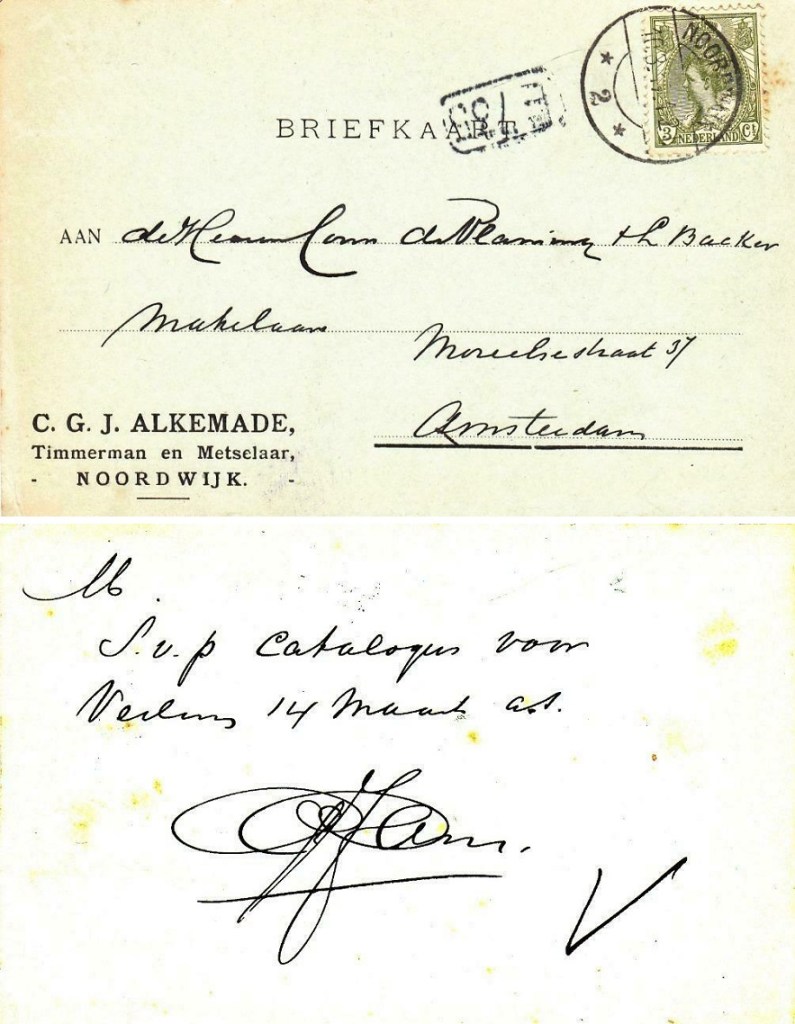 BRIEFKAART
NOORDWIJK
2
3 NEDERLAND Ct
AAN de Heeren Corn de & L Backer
Makelaars
Moreelsestraat 37
Amsterdam
C. G. J. ALKEMADE,
Timmerman en Metselaar,
- NOORDWIJK. -
M.
S.v.p catalogus voor
14 Maart a.s.